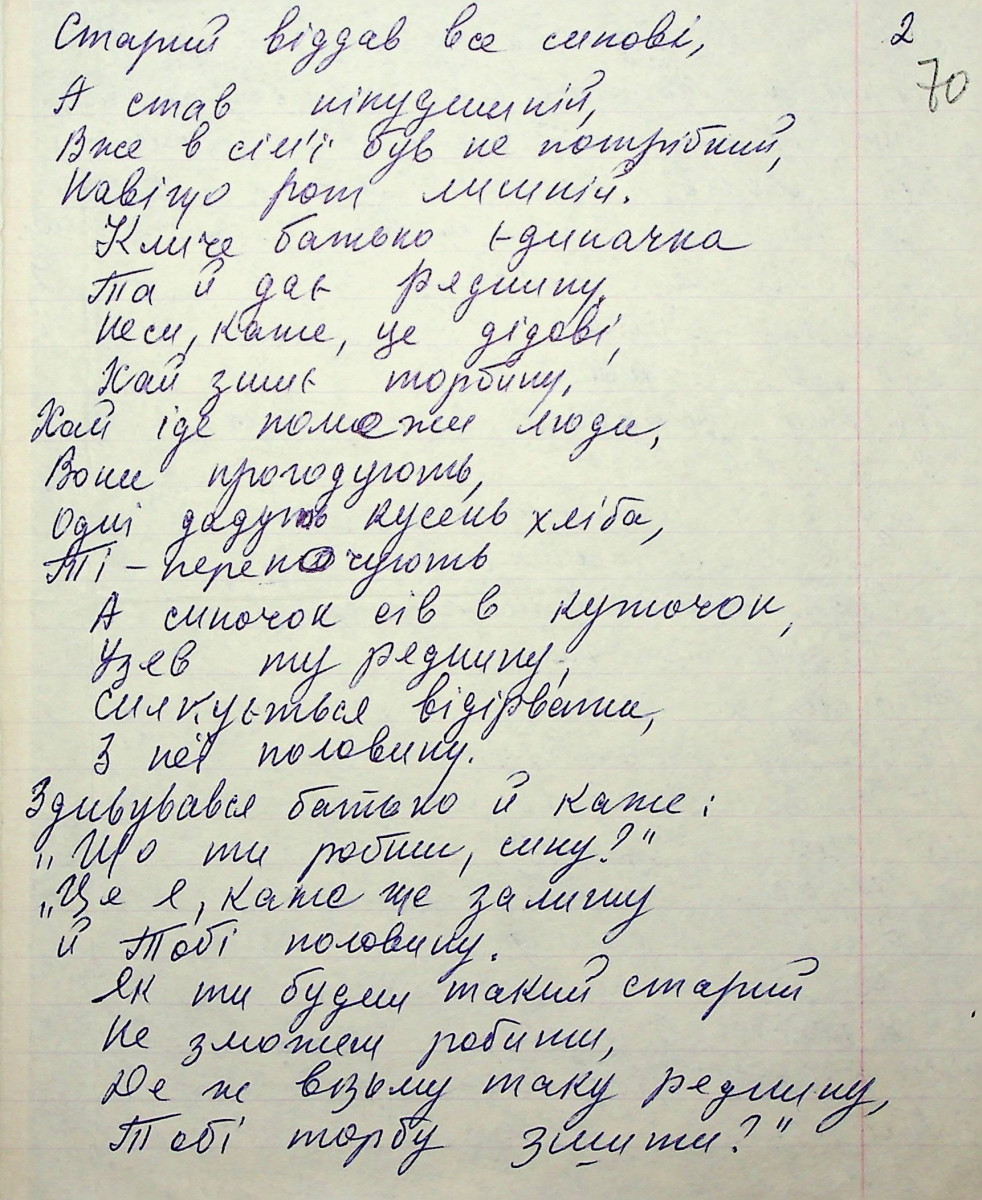 2
70
Старий віддав все синові,
А став нікудишній,
Вже в сім'ї був не потрібний,
Навіщо рот лишній.
Кличе батько єдиначка
Та й дає ряднину,
Неси, каже, це дідові,
Хай зшиє торбину,
Хай іде помежи люди,
Вони прогодують,
Одні дадуть кусень хліба,
Ті - переночують
А синочок сів в куточок,
Узяв ту ряднину,
Силкується відірвати,
З неї половину.
Здивувався батько й каже:
„Що ти робиш, сину?"
„Це я, каже ще залишу
й Тобі половину.
Як ти будеш такий старий
Не зможеш робити,
Де ж візьму таку ряднину,
Тобі торбу зшити?"